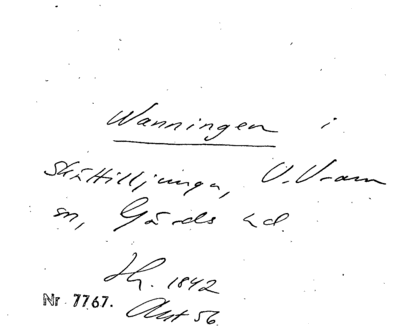 Wanningen i
Skättilljunga, V. Vram
sn, Gärds hd.
Hg. 1842
Nr 7767. Akt 56.